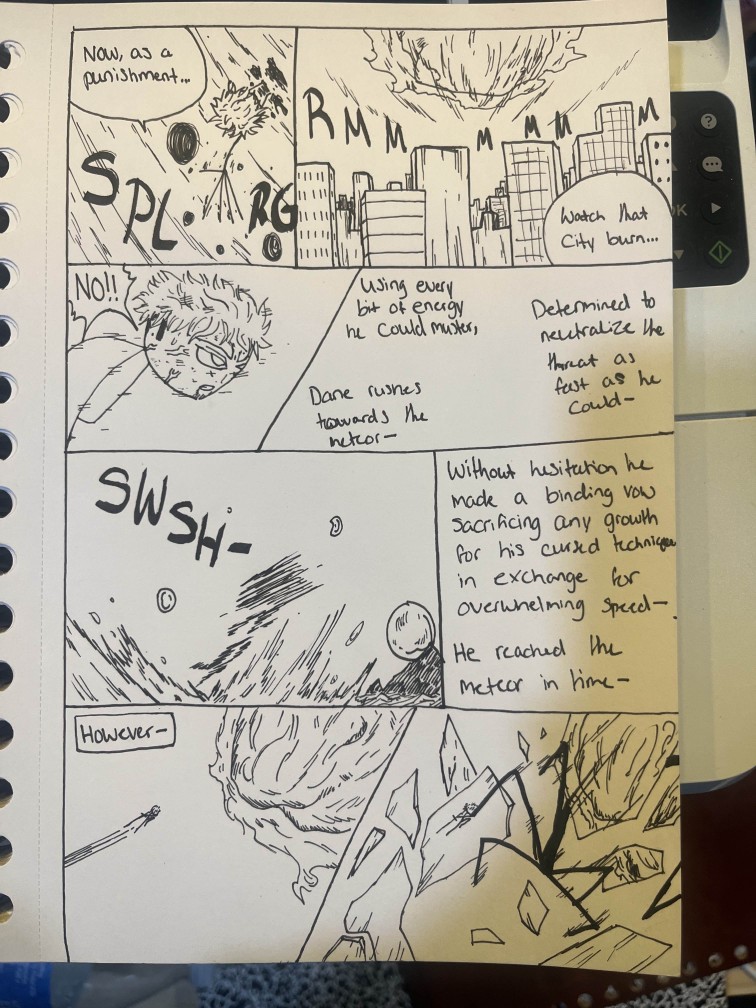 Now, as a
punishment...
SPLRG
RMMMMMM
Watch that
City burn...
NO!!
Using every
bit of energy
he could muster,
Dane rushes
towards the
meteor-
Determined to
neutralize the
threat as
fast as he
could-
SWSH-
Without hesitation he
made a binding vow
sacrificing any growth
for his cursed technique
in exchange for
overwhelming speed-.
He reached the
meteor in time-
However-
OK